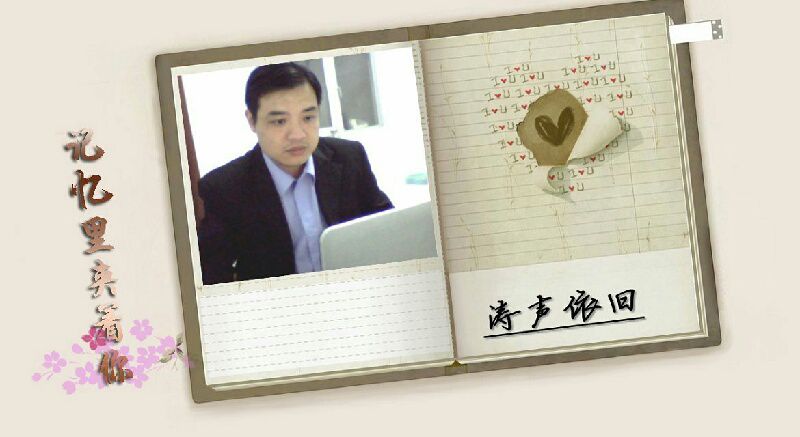 记忆里夹着你
I♥U I♥U
I♥U I♥U I♥U I♥U
I♥U I♥U I♥U I♥U I♥U
I♥U
I♥U
I♥U
I♥U
I♥U
涛声依旧